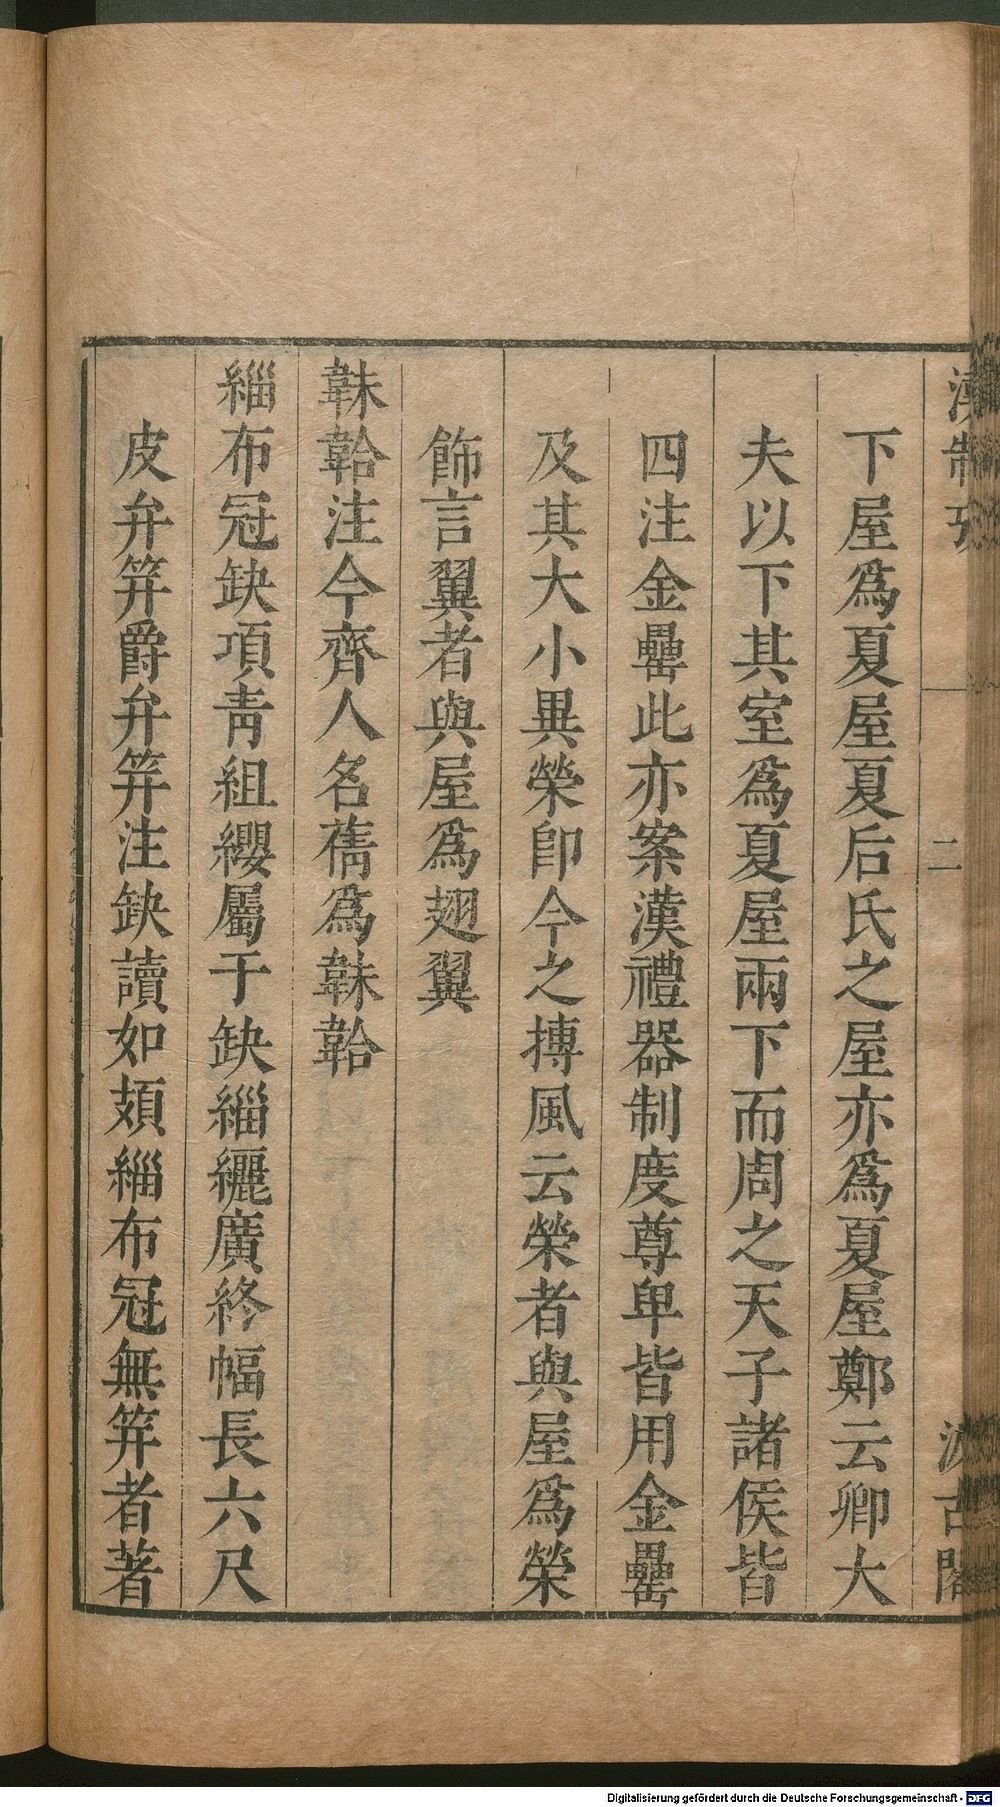 漢制攷
二
汲古閣
下屋爲夏屋夏后氏之屋亦爲夏屋鄭云卿大
夫以下其室爲夏屋兩下而周之天子諸侯皆
四注金罍此亦案漢禮器制度尊卑皆用金罍
及其大小異榮卽今之摶風云榮者與屋爲榮
飾言翼者與屋爲翅翼
韎韐注今齊人名蒨爲韎韐
緇布冠缺項靑組纓屬于缺緇纚廣終幅長六尺
皮弁筓爵弁筓注缺讀如頍緇布冠無筓者著
Digitalisierung gefördert durch die Deutsche Forschungsgemeinschaft - DFG